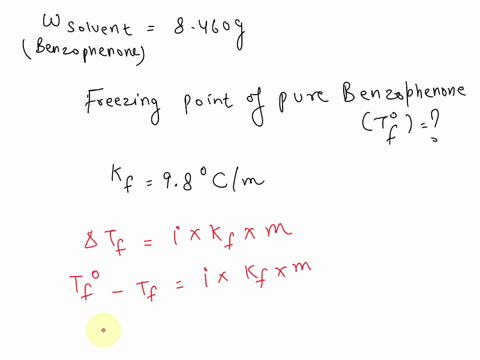 W solvent = 8.460g
(Benzophenone)
Freezing point of pure Benzophenone
(T°f) = ?
Kf = 9.8°C/m
ΔTf = i × Kf × m
Tf° - Tf = i × Kf × m